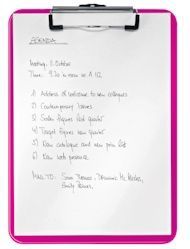 AGENDA
Meeting: 11. October
Time: 9.30 in room no A 112
1) Address of welcome to new colleagues
2) Contemporary issues
3) Sales figures past quarter
4) Target figures new quarter
5) New catalogue and new price list
6) New web presence
MAIL TO: Sam Thomas,
Emily